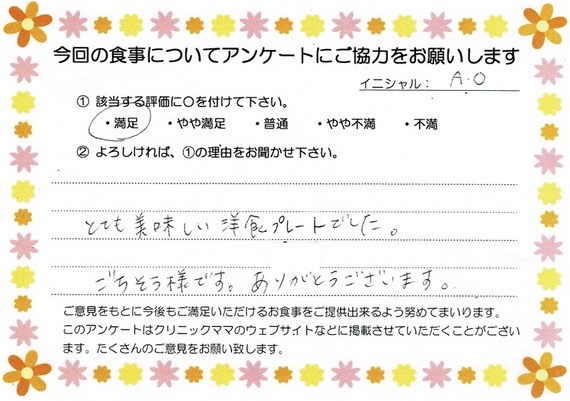 今回の食事についてアンケートにご協力をお願いします
イニシャル： A.O
① 該当する評価に○を付けて下さい。
・満足 ・やや満足 ・普通 ・やや不満 ・不満
② よろしければ、①の理由をお聞かせ下さい。
とても美味しい洋食プレートでした。
ごちそう様です。ありがとうございます。
ご意見をもとに今後もご満足いただけるお食事をご提供出来るよう努めてまいります。
このアンケートはクリニックママのウェブサイトなどに掲載させていただくことがござい
ます。たくさんのご意見をお願い致します。